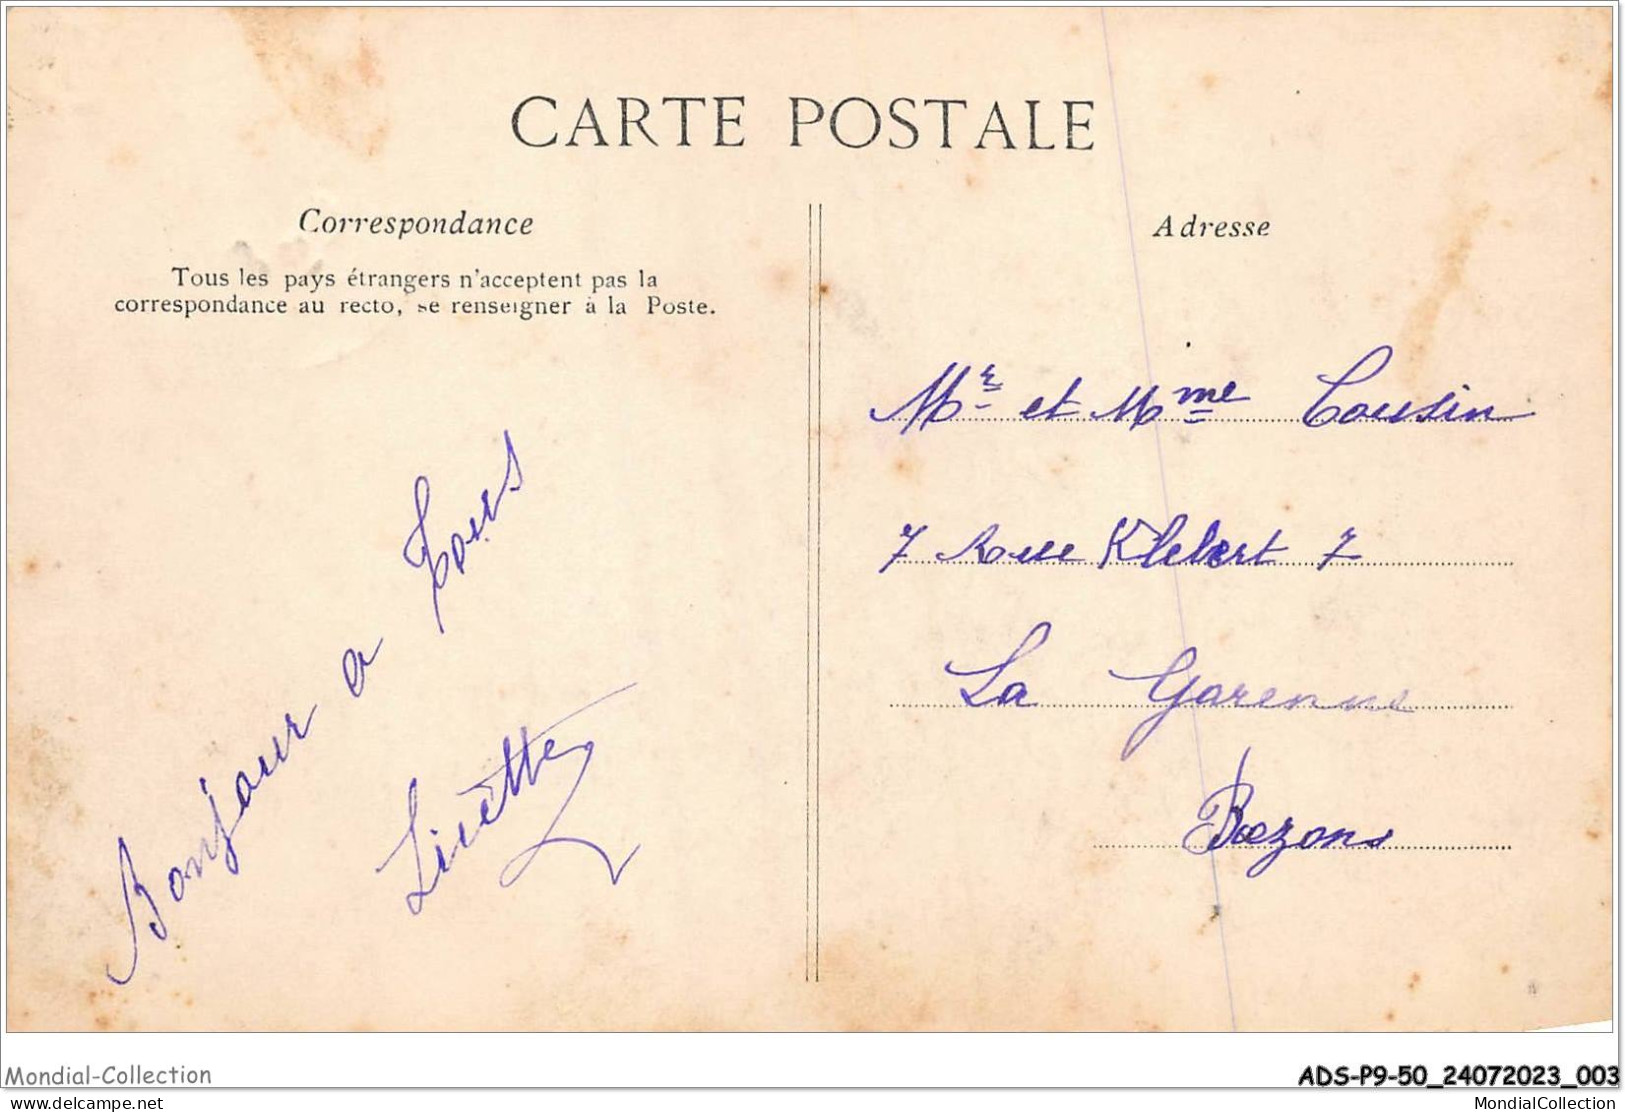 CARTE POSTALE
Correspondance
Tous les pays étrangers n'acceptent pas la
correspondance au recto, se renseigner à la Poste.
Bonjour a Tous
Adresse
Mr et Mme Cousin
7 Rue Klebert 7
La Garenne
Bezons
Mondial-Collection
ADS-P9-50_24072023_003
www.delcampe.net
MondialCollection